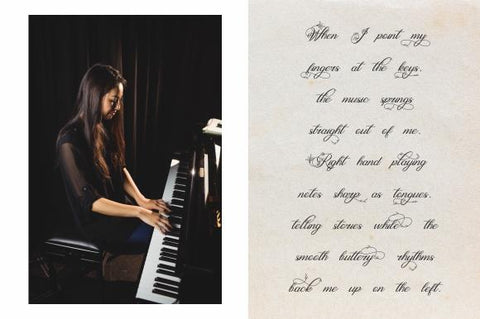 When I point my
fingers at the keys,
the music springs
straight out of me.
Right hand playing
notes sharp as tongues,
telling stories while the
smooth buttery rhythms
back me up on the left.